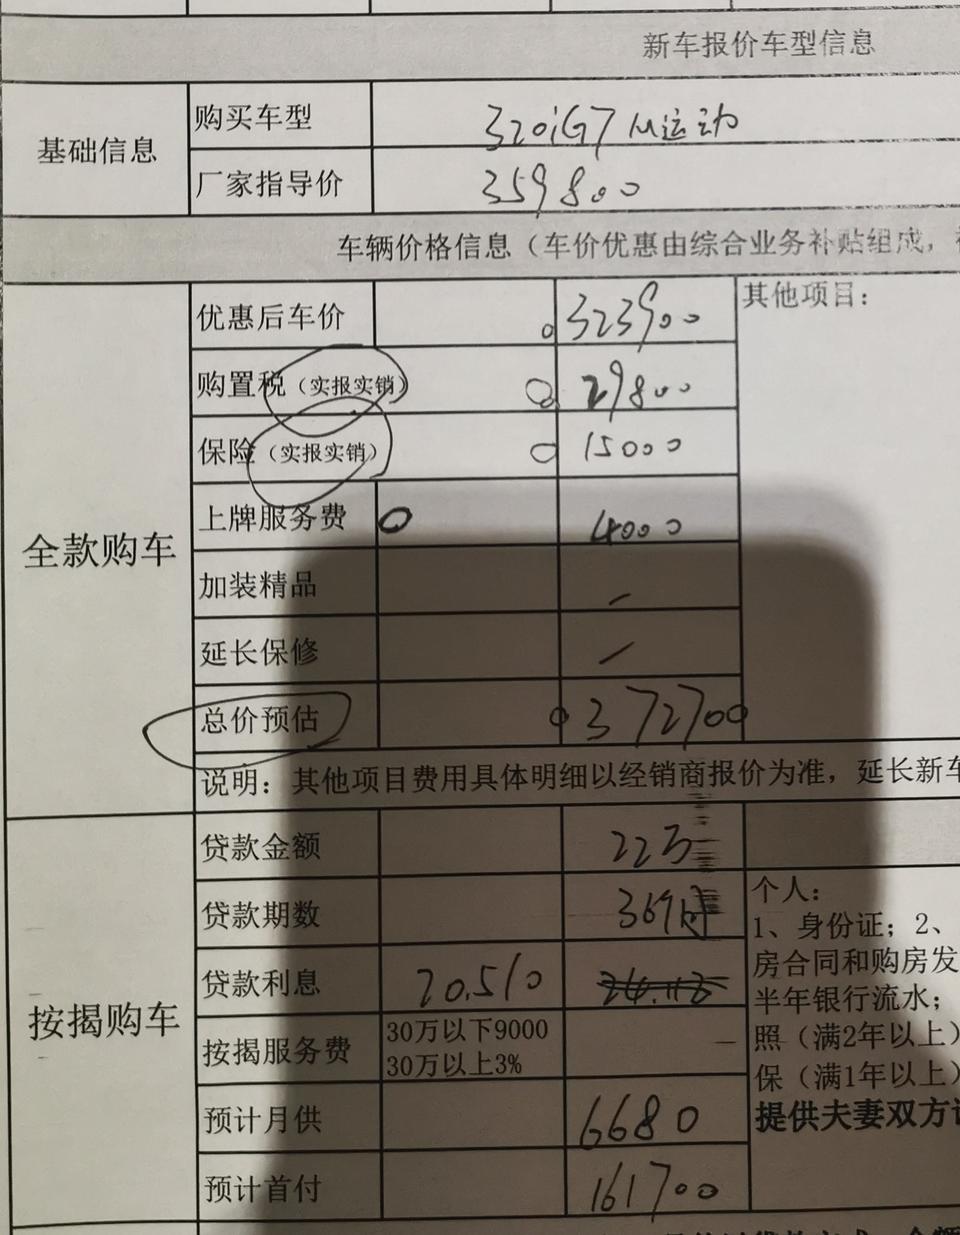 新车报价车型信息
基础信息
购买车型 320iG7 M运动
厂家指导价 359800
车辆价格信息（车价优惠由综合业务补贴组成，
全款购车
优惠后车价 323900
其他项目：
购置税（实报实销） 29800
保险（实报实销） 15000
上牌服务费 4000
加装精品
延长保修
总价预估 372700
说明：其他项目费用具体明细以经销商报价为准，延长新车
按揭购车
贷款金额 22万
贷款期数 36期
贷款利息 20.510
按揭服务费 30万以下9000
30万以上3%
预计月供 6680
预计首付 161700
个人：
1、身份证；2、
房合同和购房发
半年银行流水；
照（满2年以上）
保（满1年以上）
提供夫妻双方